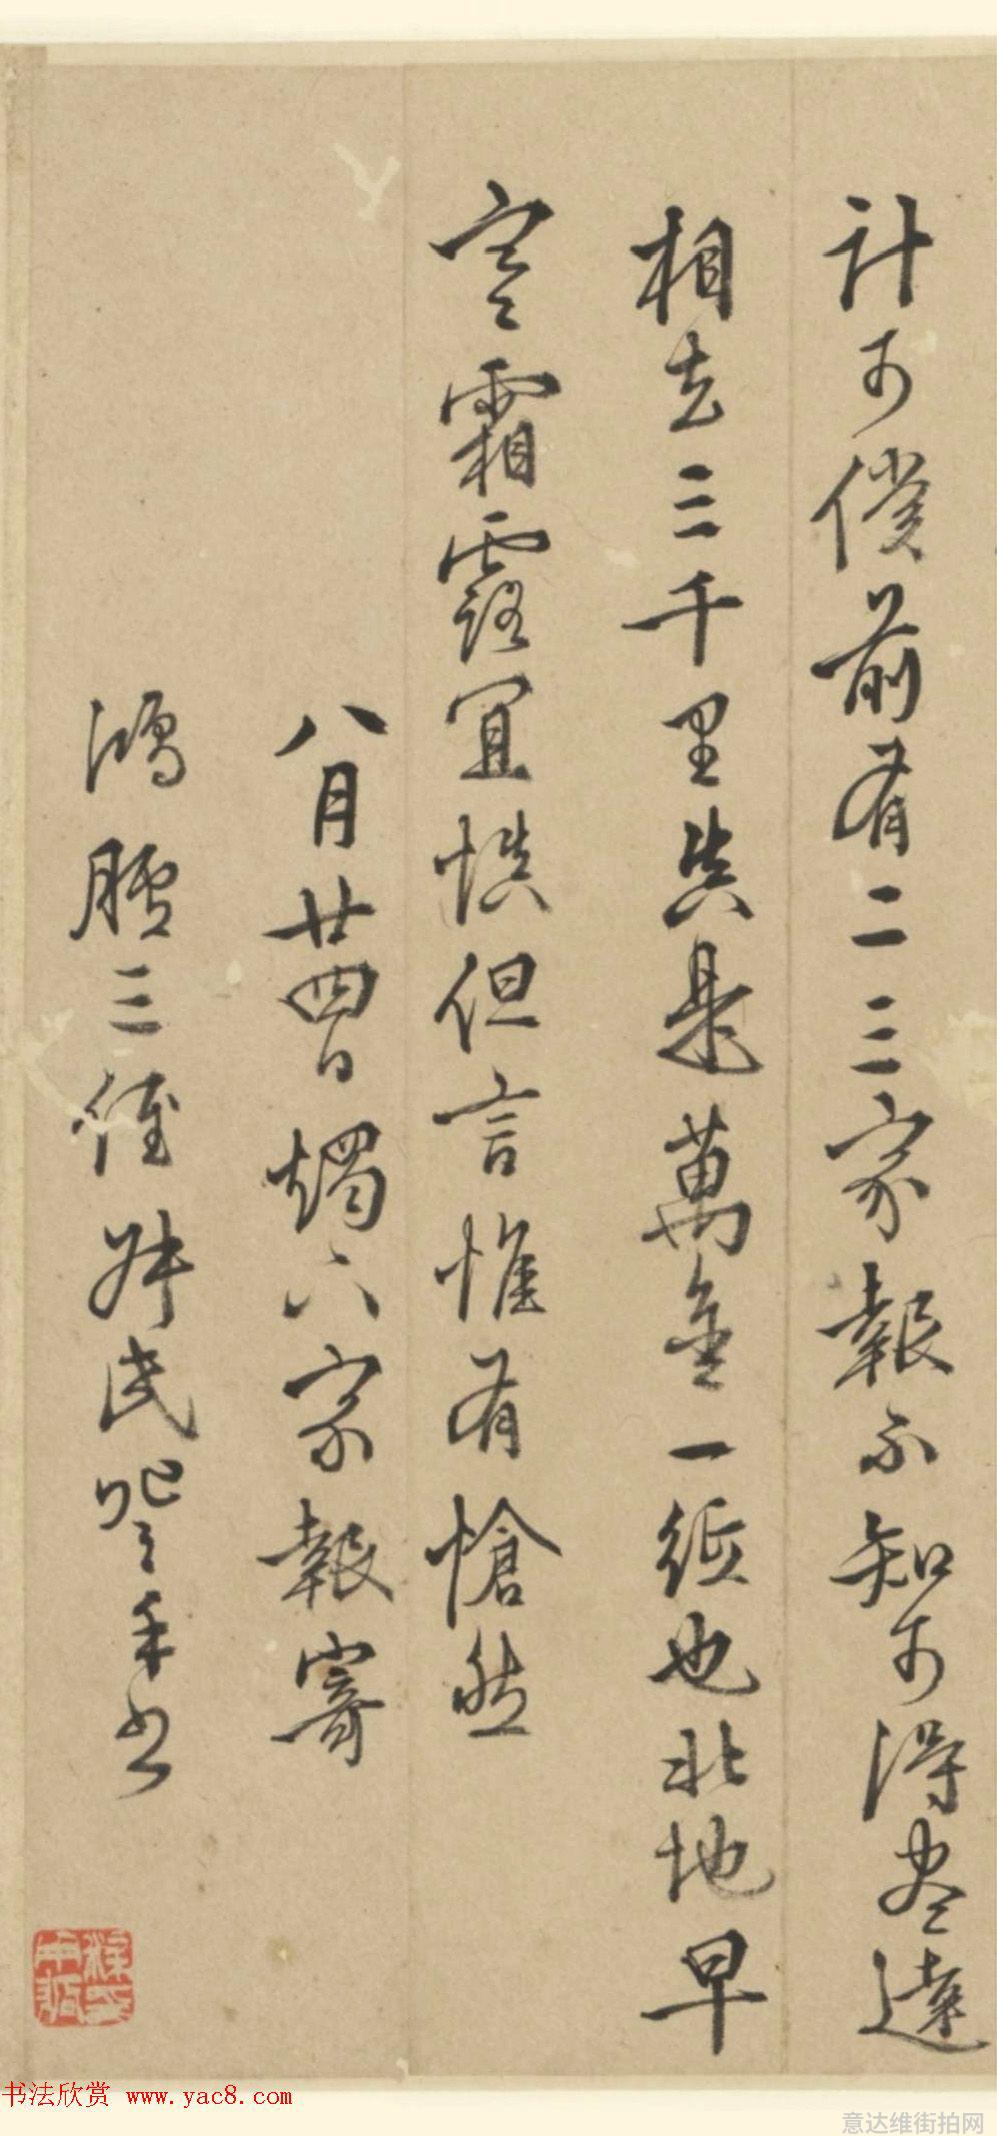 計可僕前有二三家報不知可得盡達
相去三千里真是萬金一紙也北地早
寒霜露宜慎但言惟有愴然
八月廿四日燭下家報寄
鴻臚三侄
书法欣赏 www.yac8.com
意达维街拍网